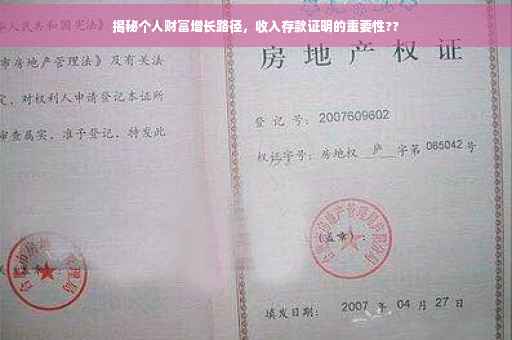 揭秘个人财富增长路径，收入存款证明的重要性??
华人民共和国宪法》
市房地产管理法》及有关法
定，对权利人申请登记本证所
审查属实，准予登记，特发此
房地产权证
登记号：2007609602
权证字号：房地权 庐 字第 065042 号
（盖章）：
填发日期：2007 年 04 月 27 日